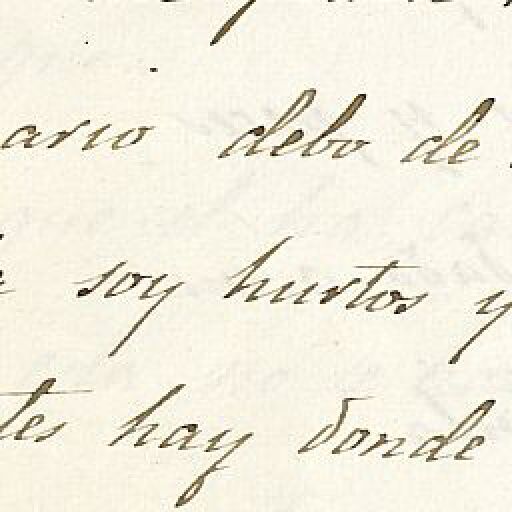 ario debo de
soy hurtos y
tes hay donde